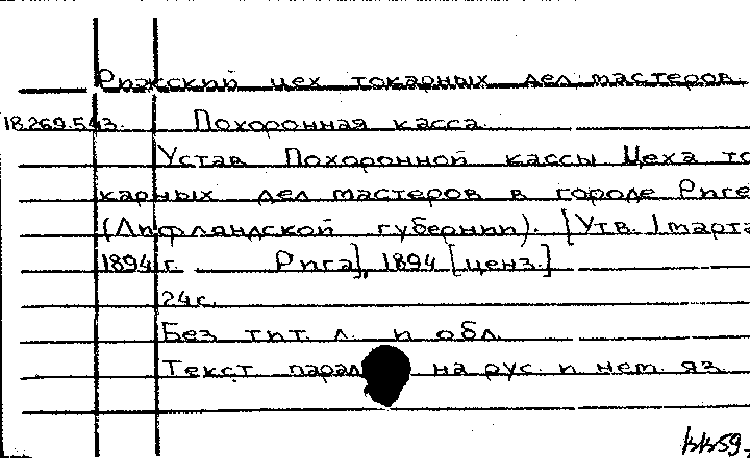 Рижский цех токарных дел мастеров.
18.269.543. Похоронная касса.
Устав Похоронной кассы Цеха то
карных дел мастеров в городе Риге
(Лифляндской губернии). [Утв. 1 марта
1894 г. Рига], 1894 [ценз.]
24 с.
Без тит. л. и обл.
Текст парал на рус. и нем. яз.